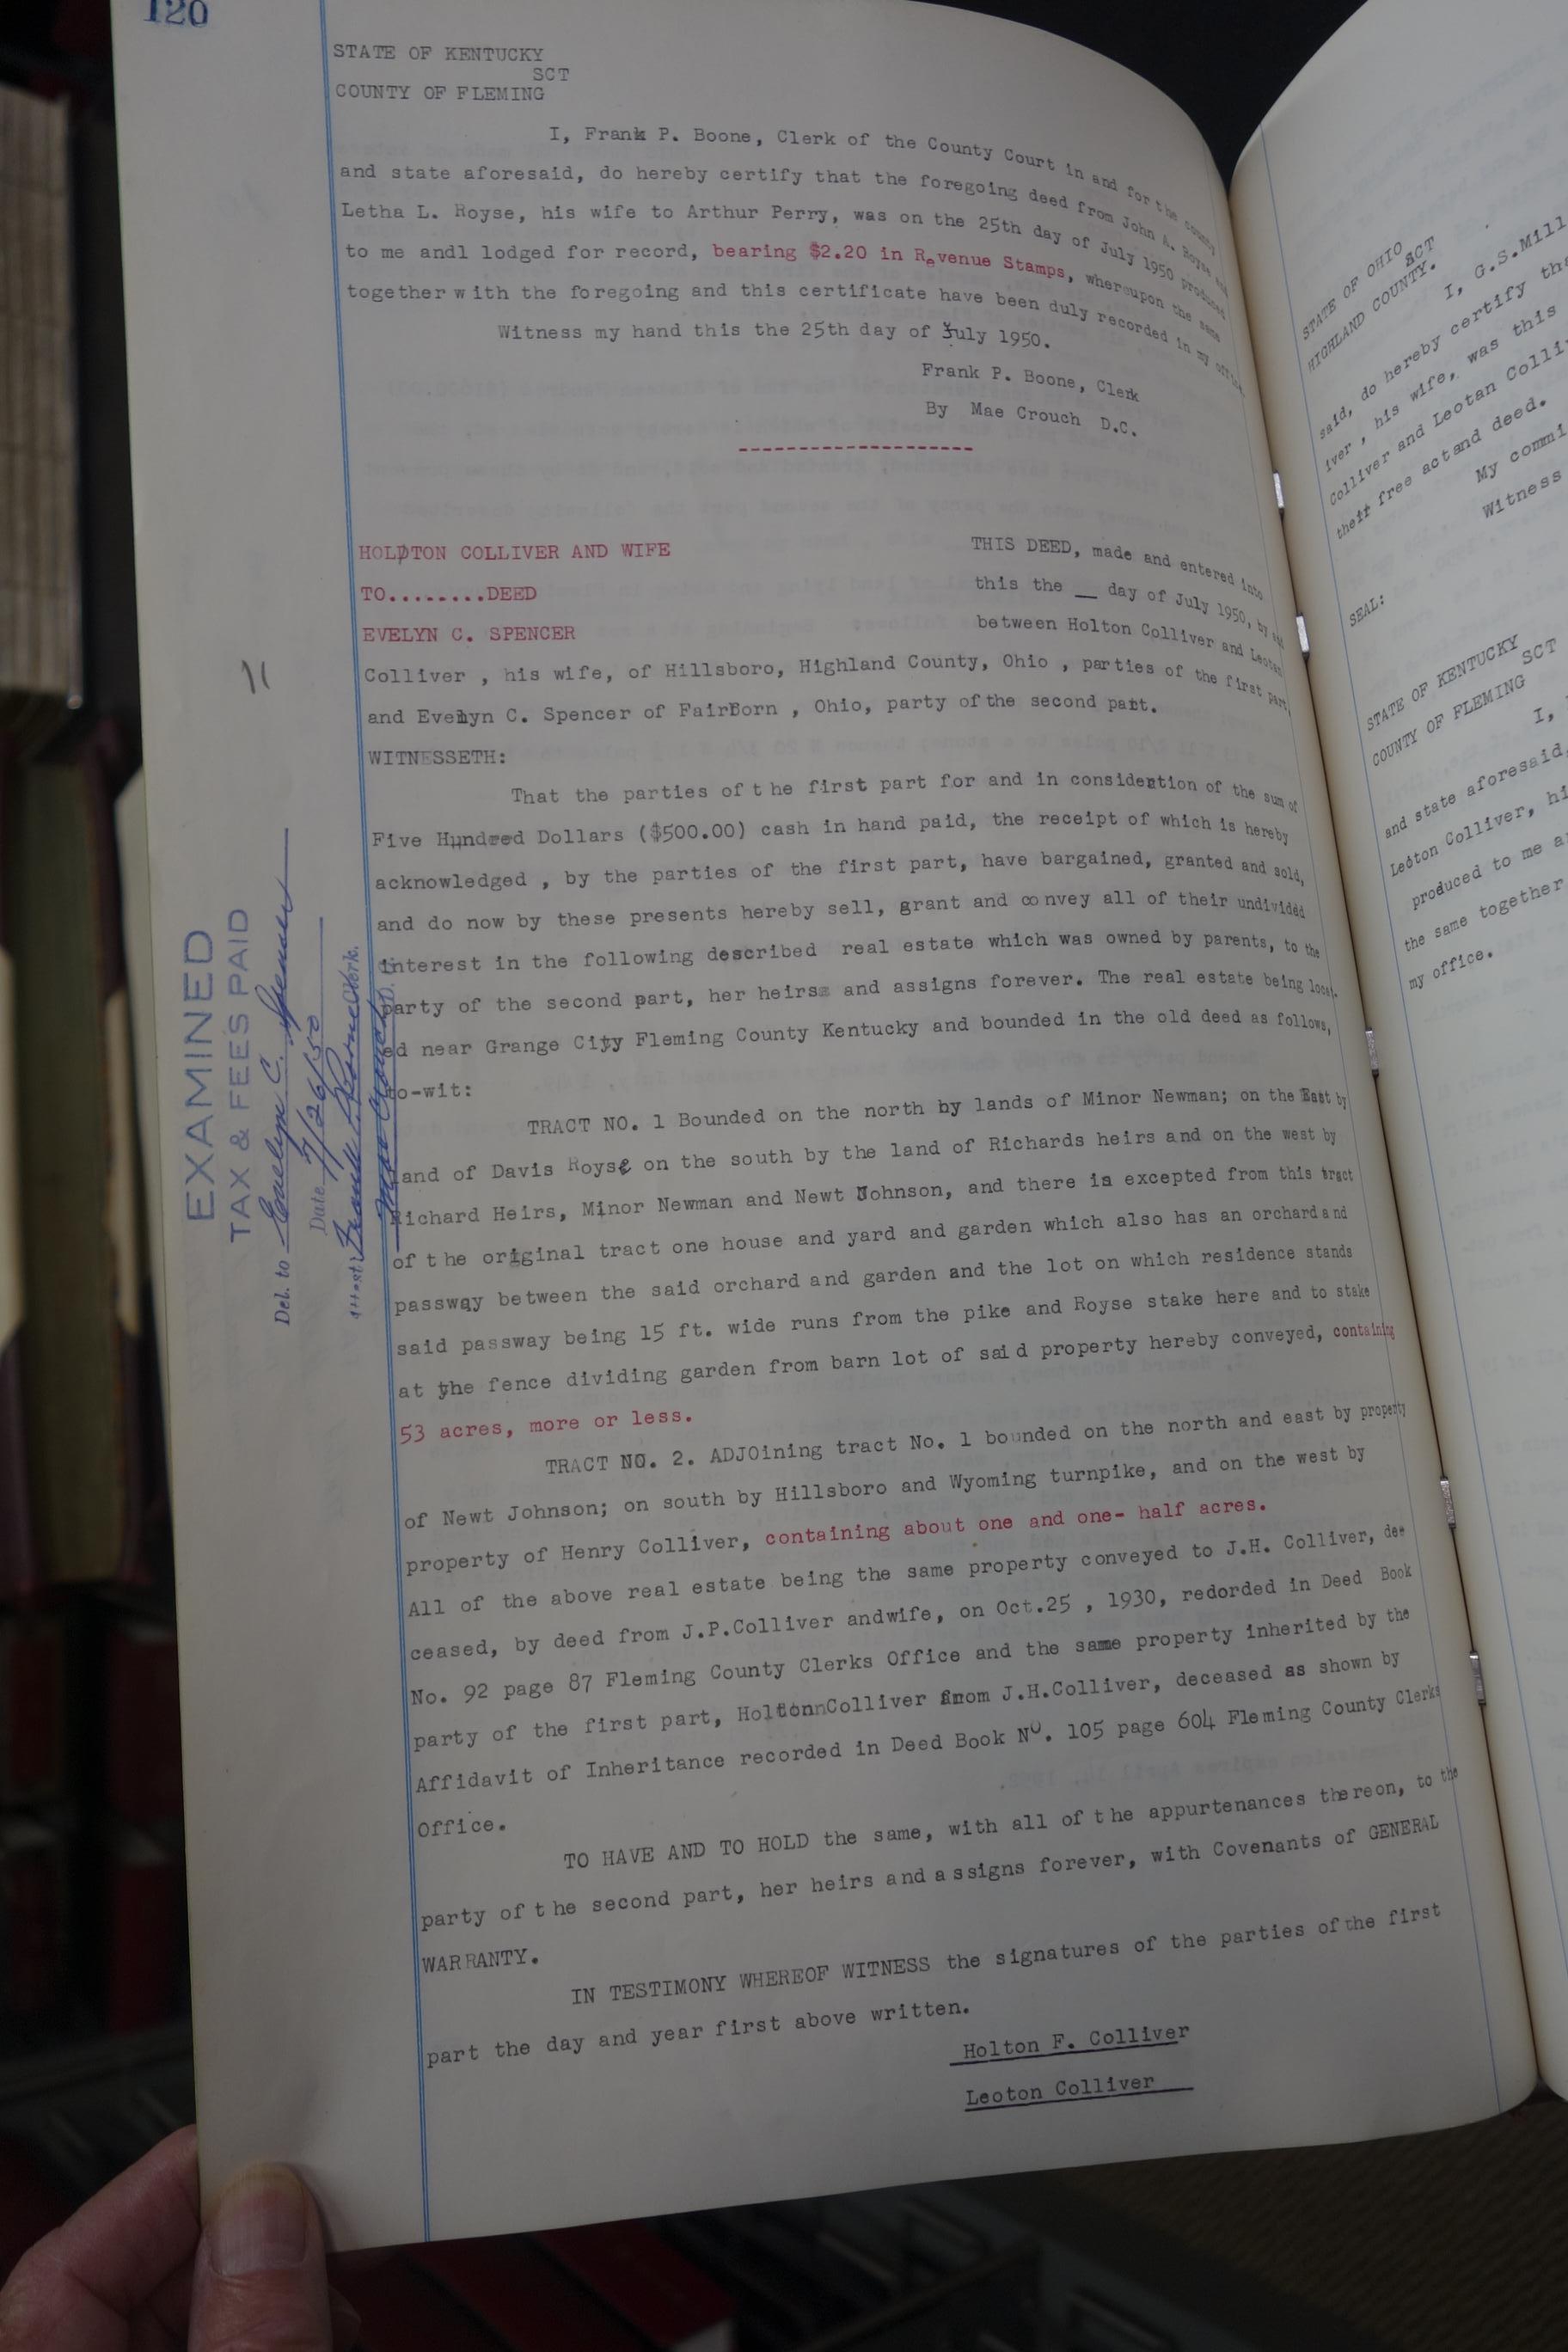 120
STATE OF KENTUCKY
SCT
COUNTY OF FLEMING
I, Frank P. Boone, Clerk of the County Court in and for the county
and state aforesaid, do hereby certify that the foregoing deed from John A. Royse and
Letha L. Royse, his wife to Arthur Perry, was on the 25th day of July 1950 produced
to me andl lodged for record, bearing $2.20 in Revenue Stamps, whereupon the same
together with the foregoing and this certificate have been duly recorded in my office.
Witness my hand this the 25th day of July 1950.
Frank P. Boone, Clerk
By Mae Crouch D.C.
HOLPTON COLLIVER AND WIFE
TO........DEED
EVELYN C. SPENCER
THIS DEED, made and entered into
this the __ day of July 1950, by and
between Holton Colliver and Leotan
Colliver , his wife, of Hillsboro, Highland County, Ohio , parties of the first part,
and Evelyn C. Spencer of FairBorn , Ohio, party of the second part.
WITNESSETH:
That the parties of the first part for and in consideration of the sum of
Five Hundred Dollars ($500.00) cash in hand paid, the receipt of which is hereby
acknowledged , by the parties of the first part, have bargained, granted and sold,
and do now by these presents hereby sell, grant and convey all of their undivided
interest in the following described real estate which was owned by parents, to the
party of the second part, her heirs and assigns forever. The real estate being locat-
ed near Grange City Fleming County Kentucky and bounded in the old deed as follows,
to-wit:
TRACT NO. 1 Bounded on the north by lands of Minor Newman; on the East by
land of Davis Royse on the south by the land of Richards heirs and on the west by
Richard Heirs, Minor Newman and Newt Johnson, and there is excepted from this tract
of the original tract one house and yard and garden which also has an orchard and
passway between the said orchard and garden and the lot on which residence stands
said passway being 15 ft. wide runs from the pike and Royse stake here and to stake
at the fence dividing garden from barn lot of said property hereby conveyed, containing
53 acres, more or less.
TRACT NO. 2. ADJOining tract No. 1 bounded on the north and east by property
of Newt Johnson; on south by Hillsboro and Wyoming turnpike, and on the west by
property of Henry Colliver, containing about one and one- half acres.
All of the above real estate being the same property conveyed to J.H. Colliver, de
ceased, by deed from J.P.Colliver andwife, on Oct.25 , 1930, redorded in Deed Book
No. 92 page 87 Fleming County Clerks Office and the same property inherited by the
party of the first part, Holton Colliver from J.H.Colliver, deceased as shown by
Affidavit of Inheritance recorded in Deed Book No. 105 page 604 Fleming County Clerks
Office.
TO HAVE AND TO HOLD the same, with all of the appurtenances thereon, to the
party of the second part, her heirs and assigns forever, with Covenants of GENERAL
WARRANTY.
IN TESTIMONY WHEREOF WITNESS the signatures of the parties of the first
part the day and year first above written.
Holton F. Colliver
Leoton Colliver
EXAMINED
TAX & FEES PAID
Del. to Evelyn C. Spencer
Date 7/26/50
Attest Frank P. Boone Clerk.
Mae Crouch D.C.
STATE OF OHIO
SCT
HIGHLAND COUNTY.
I, G.S.Mill
said, do hereby certify tha
iver , his wife, was this
Colliver and Leotan Colliv
their free actand deed.
My commi
Witness
SEAL:
STATE OF KENTUCKY
SCT
COUNTY OF FLEMING
I,
and state aforesaid,
Leoton Colliver, hi
produced to me a
the same together
my office.